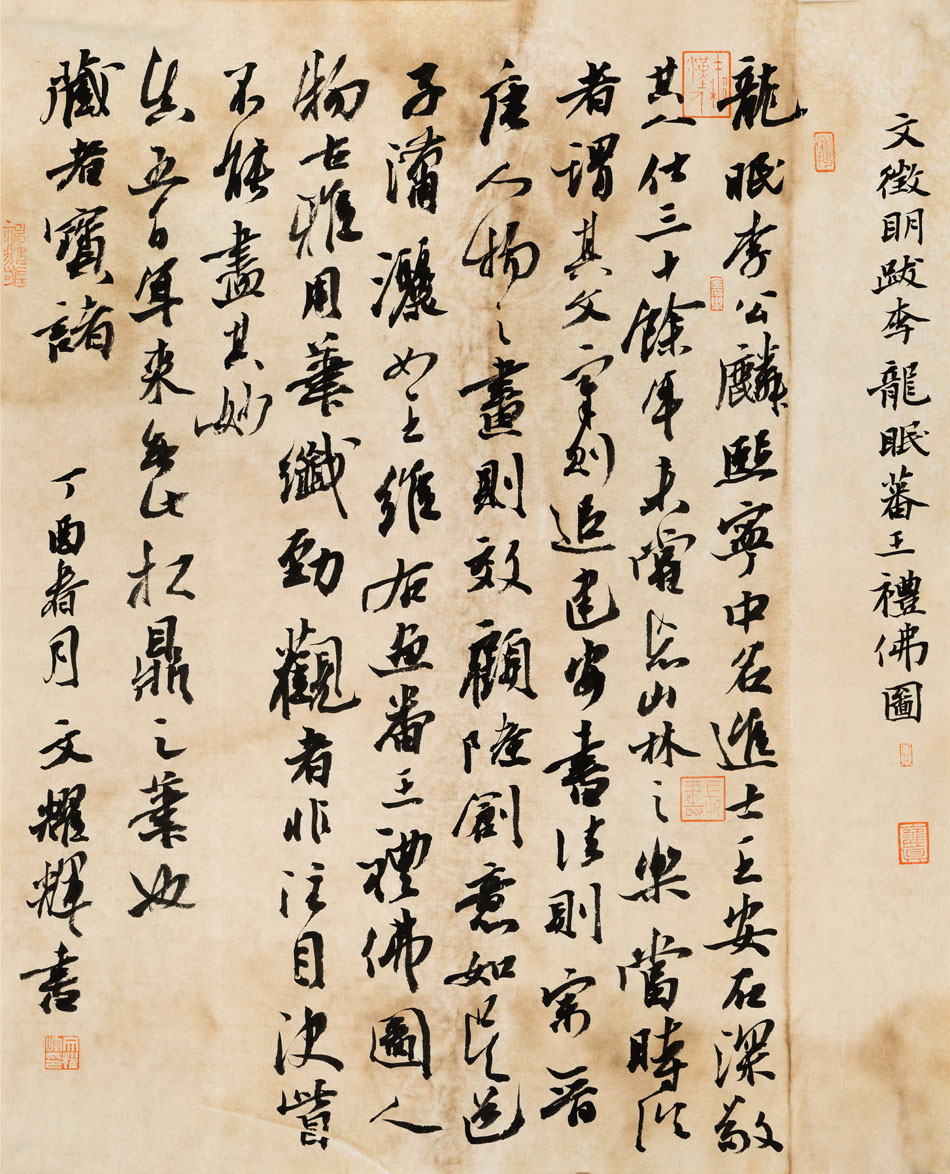 文徵明跋李龍眠蕃王禮佛圖
龍眠李公麟熙寧中名進士王安石深敬
其人仕三十餘年未嘗忘山林之樂當時
者謂其文章則追建安書法則宗晉
唐人物之畫則效顧陸創意如吳道
子瀟灑如王維右畫番王禮佛圖人
物古雅用筆纖勁觀者非注目決眥
不能盡其妙
真五百年來無此扛鼎之筆也
藏者寶諸
丁酉春月文耀輝書